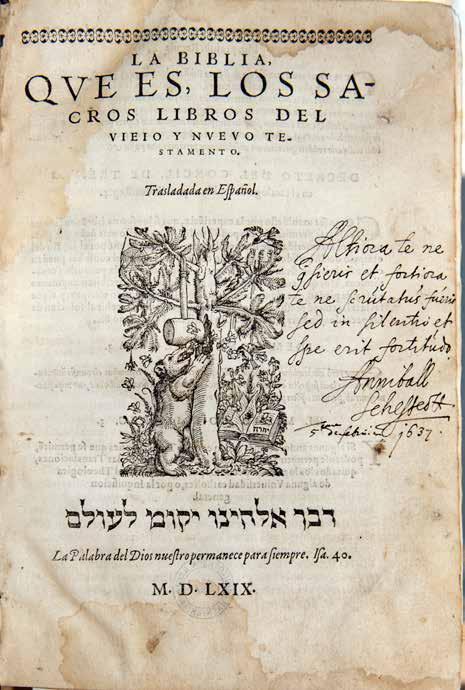 LA BIBLIA,
QVE ES, LOS SA-
CROS LIBROS DEL
VIEIO Y NVEVO TE-
STAMENTO.
Trasladada en Español.
Altiora te ne
q̃sieris et fortiora
te ne scrutatus fueris
sed in silentio et
spe erit fortitudo.
Anniball
Sehestedt
1637.
דבר אלהינו יקום לעולם
La Palabra del Dios nuestro permanece para siempre. Isa. 40.
M. D. LXIX.